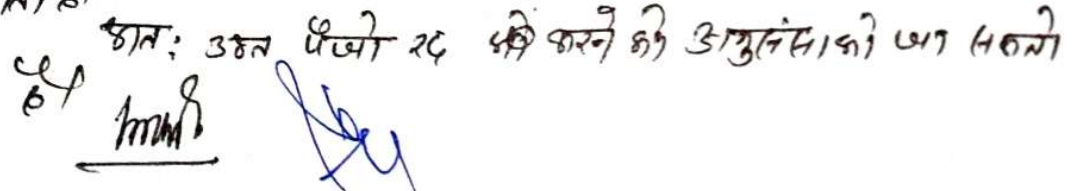 अतः उक्त पंजी रद्द करने की अनुशंसा की जा सकती
है।